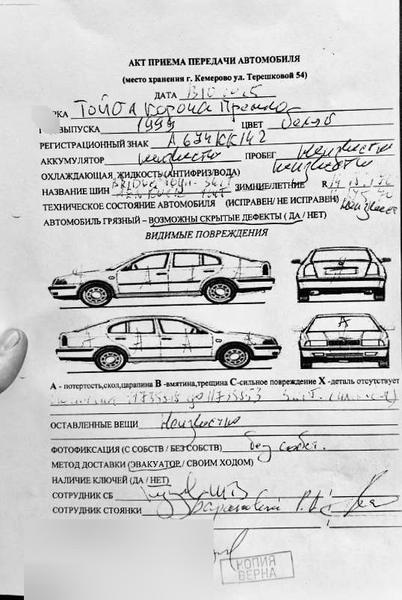 АКТ ПРИЕМА ПЕРЕДАЧИ АВТОМОБИЛЯ
(место хранения г. Кемерово ул. Терешковой 54)
ДАТА
КА Тойота корона Премио
ВЫПУСКА 1999 ЦВЕТ белый
РЕГИСТРАЦИОННЫЙ ЗНАК А 674 КК 142
АККУМУЛЯТОР неизвестно ПРОБЕГ неизвестно
ОХЛАЖДАЮЩАЯ ЖИДКОСТЬ (АНТИФРИЗ/ВОДА) неизвестно
НАЗВАНИЕ ШИН ЗИМНИЕ/ЛЕТНИЕ R
ТЕХНИЧЕСКОЕ СОСТОЯНИЕ АВТОМОБИЛЯ (ИСПРАВЕН/ НЕ ИСПРАВЕН) неизвест
АВТОМОБИЛЬ ГРЯЗНЫЙ – ВОЗМОЖНЫ СКРЫТЫЕ ДЕФЕКТЫ ( ДА / НЕТ)
ВИДИМЫЕ ПОВРЕЖДЕНИЯ
А - потертость,скол,царапина В -вмятина,трещина С-сильное повреждение Х -деталь отсутствует
ОСТАВЛЕННЫЕ ВЕЩИ Неизвестно
ФОТОФИКСАЦИЯ (С СОБСТВ / БЕЗ СОБСТВ) без собств.
МЕТОД ДОСТАВКИ (ЭВАКУАТОР / СВОИМ ХОДОМ)
НАЛИЧИЕ КЛЮЧЕЙ (ДА / НЕТ)
СОТРУДНИК СБ
СОТРУДНИК СТОЯНКИ
КОПИЯ
ВЕРНА